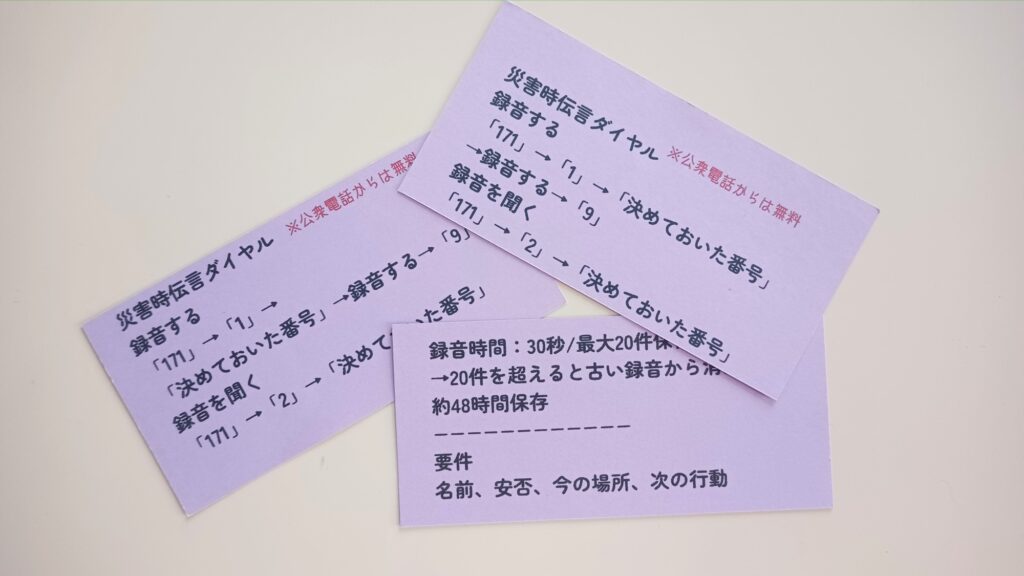 災害時伝言ダイヤル ※公衆電話からは無料
録音する
「171」→「1」→「決めておいた番号」
→録音する→「9」
録音を聞く
「171」→「2」→「決めておいた番号」
災害時伝言ダイヤル ※公衆電話からは無料
録音する
「171」→「1」→
「決めておいた番号」→録音する→「9」
録音を聞く
「171」→「2」→「決めて いた番号」
録音時間：30秒/最大20件保
→20件を超えると古い録音から消
約48時間保存
ーーーーーーーーーーーー
要件
名前、安否、今の場所、次の行動